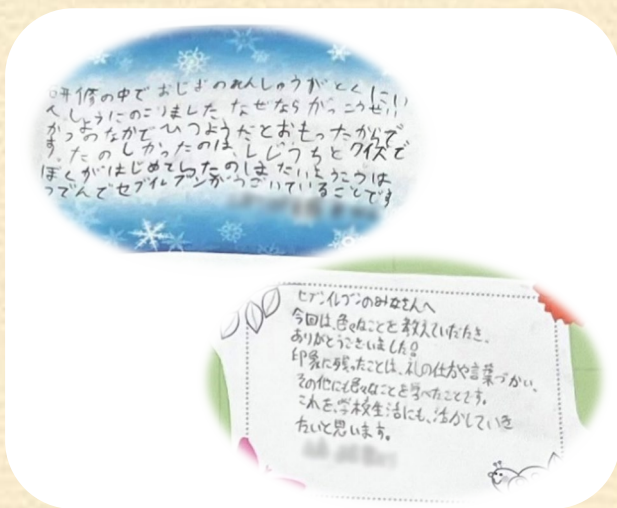 研修の中でおじぎのれんしゅうがとくにい
んしょうにのこりました。なぜならがっこうせい
かつのなかでひつようだとおもったからで
す。たのしかったのはしじうちとクイズで
ぼくがはじめてしったのはたいようこうは
つでんでセブンイレブンがうごいていることです
セブンイレブンのみなさんへ
今回は、色々なことを教えていただき、
ありがとうございました！
印象に残ったことは、礼の仕方や言葉づかい、
その他にも色々なことを学べたことです。
これを、学校生活にも、活かしていき
たいと思います。